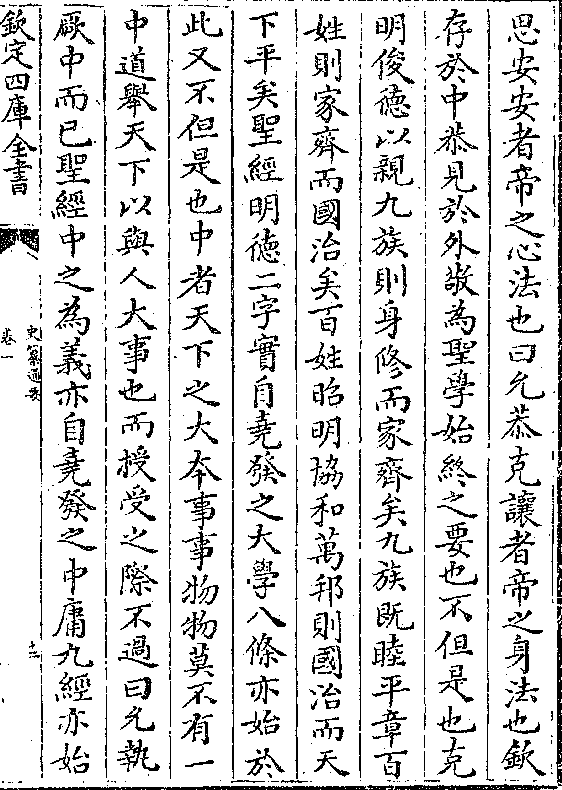 思安安者帝之心法也曰允恭克讓者帝之身法也欽
存於中恭見於外敬為聖學始終之要也不但是也克
明俊德以親九族則身修而家齊矣九族既睦平章百
姓則家齊而國治矣百姓昭明協和萬邦則國治而天
下平矣聖經明德二字實自堯發之大學八條亦始於
此又不但是也中者天下之大本事事物物莫不有一
中道舉天下以與人大事也而授受之際不過曰允執
厥中而已聖經中之為義亦自堯發之中庸九經亦始
欽定四庫全書
史纂通要
卷一
十二